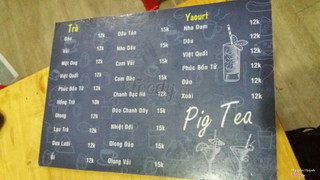 Trà
Dâu 10k
Vải 10k
Mật Ong 10k
Việt Quất 10k
Phúc Bồn Tử 10k
Hồng Trà 10k
Olong
Lạc Trà
Dưa Lưới
Ổi
Dâu Tằm 15k
Nho Dâu 15k
Cam Vải 15k
Cam Đào 15k
Chanh Bạc Hà 12k
Dứa Chanh Dây 15k
Nhiệt Đới 15k
Olong Đào 15k
Olong Vải 15k
Yaourt
Nha Đam 12k
Dâu 12k
Việt Quất 12k
Phúc Bồn Tử 12k
Đào 12k
Xoài 12k
Pig Tea